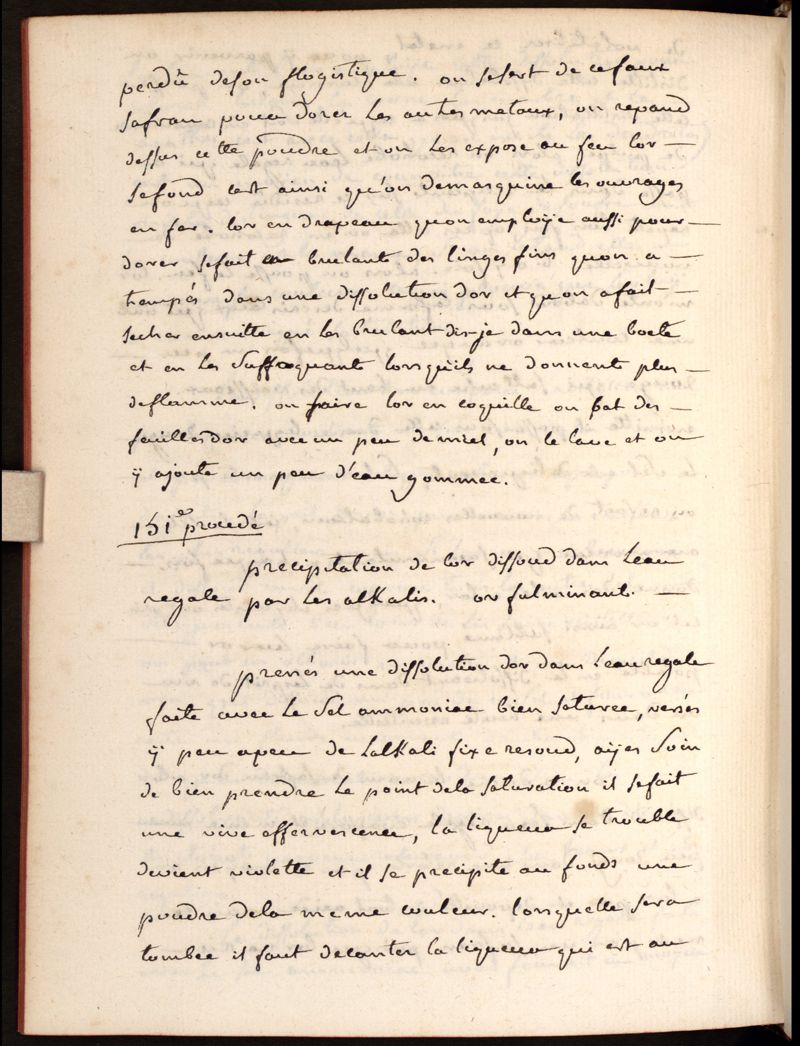 perdû deson flogistique. on sesert de cefaux
safran pour dorer les autes metaux, on repand
dessus cette poudre et on les expose au feu lor —
sefond cest ainsi qu'on demasquine les ouvrages
en fer. lor en drapeau quon employe aussi pour —
dorer sefait en brulant des linges fins quon a —
trempés dans une dissolution dor et quon afait —
secher ensuitte en les brulant dis-je dans une boete
et en les suffoquant lorsquils ne donnent plus —
deflamme. on faire lor en coquille on bat des —
feuilles dor avec un peu de miel, on le lave et on
ÿ ajoute un peu d'eau gommee.
151e procedé
precipitation de lor dissoud dans leau
regale par les alkalis. or fulminant. —
prenés une dissolution dor dans leau regale
faite avec le sel ammoniac bien saturee, versés
ÿ peu apeu de lalkali fixe resoud, aÿes soin
de bien prendre le point dela saturation il sefait
une vive effervescence, la liqueur se trouble
devient violette et il se precipite au fonds une
poudre dela meme couleur. lorsquelle sera
tombee il faut decanter la liqueur qui est au